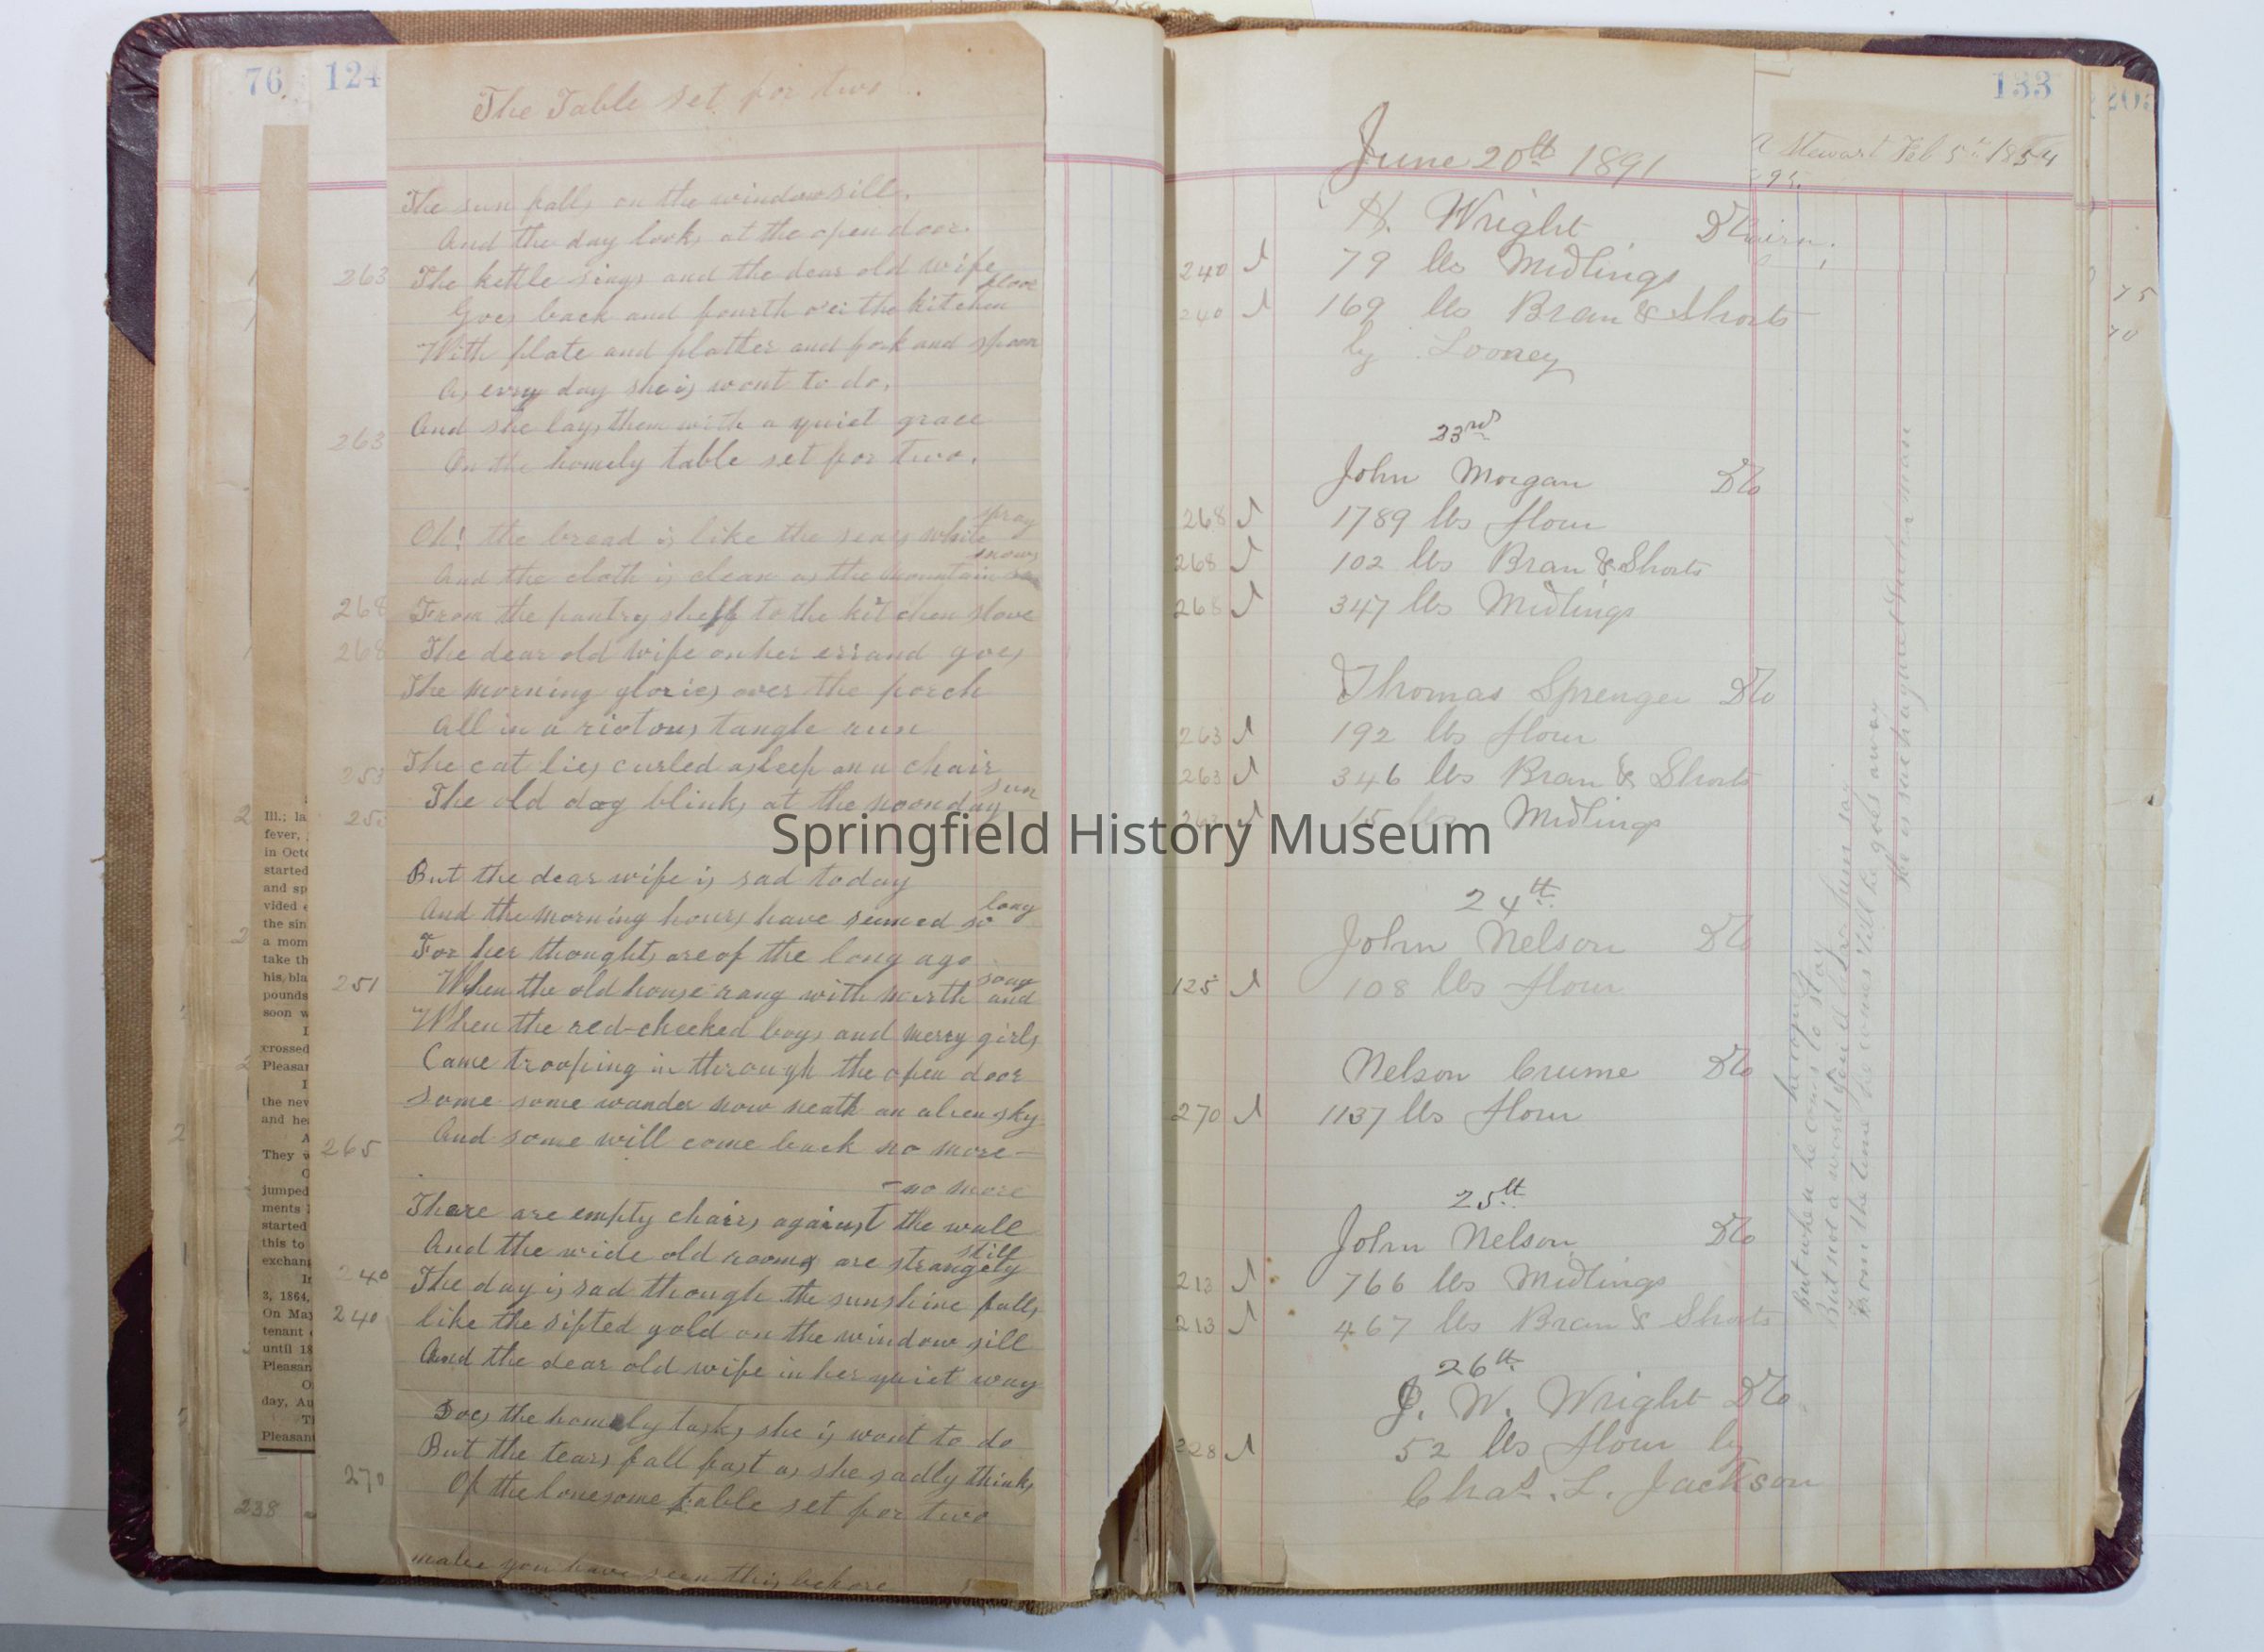 76
124
The Table set for two
The sun falls on the windowsill,
And the day looks at the open door.
263
The kettle sings and the dear old wife
Goes back and fourth o'er the kitchen floor
With plate and platter and fork and spoon
As evry day she is wont to do,
And she lays them with a quiet grace
263
On the homely table set for two.
Oh! the bread is like the seas white spray
And the cloth is clean as the mountain snows
268
From the pantry shelf to the kitchen stove
268
The dear old wife on her errand goes
The morning glories over the porch
All in a riotous tangle run
253
The cat lies curled asleep on a chair
The old dog blinks at the noonday sun
But the dear wife is sad today
And the morning hours have seemed so long
For her thoughts are of the long ago
251
When the old house rang with mirth and song
When the red-cheeked boys and merry girls
Came trooping in through the open door
Some some wander now neath an alien sky
265
And some will come back no more—
-no more
There are empty chairs against the wall
And the wide old rooms are strangely still
240
The day is sad though the sunshine falls
240
like the sifted gold on the window sill
And the dear old wife in her quiet way
Does the homely tasks she is wont to do
But the tears fall fast as she sadly thinks
270
Of the lonesome table set for two
you have seen this before
238
Ill.; la
fever,
in Octo
started
and sp
vided
the sin
a mom
take th
his, bla
pounds
soon w
crossed
Pleasan
the nev
and he
They
jumped
ments
started
this to
exchan
3, 1864,
On May
tenant
until 18
Pleasan
day, Au
Pleasant
133
June 20th 1891
A Stewart Feb 5th 1854
95.
H. Wright Dto
240 79 lbs Midlings
240 169 lbs Bran & Shorts
by Looney
75
70
23rd
John Morgan Dto
268 1789 lbs flour
268 102 lbs Bran & Shorts
268 347 lbs Midlings
Thomas Sprenger Dto
263 192 lbs flour
263 346 lbs Bran & Shorts
263 15 lbs Midlings
24th
John Nelson Dto
125 108 lbs flour
Nelson Crume Dto
270 1137 lbs flour
25th
John Nelson Dto
213 766 lbs Midlings
213 467 lbs Bran & Shorts
26th
J. W. Wright Dto
228 52 lbs flour by
Chas. L. Jackson
But when he comes to stay
But not a word you'll hear him say
From the time he comes till he goes away
he is such a quiet
Springfield History Museum